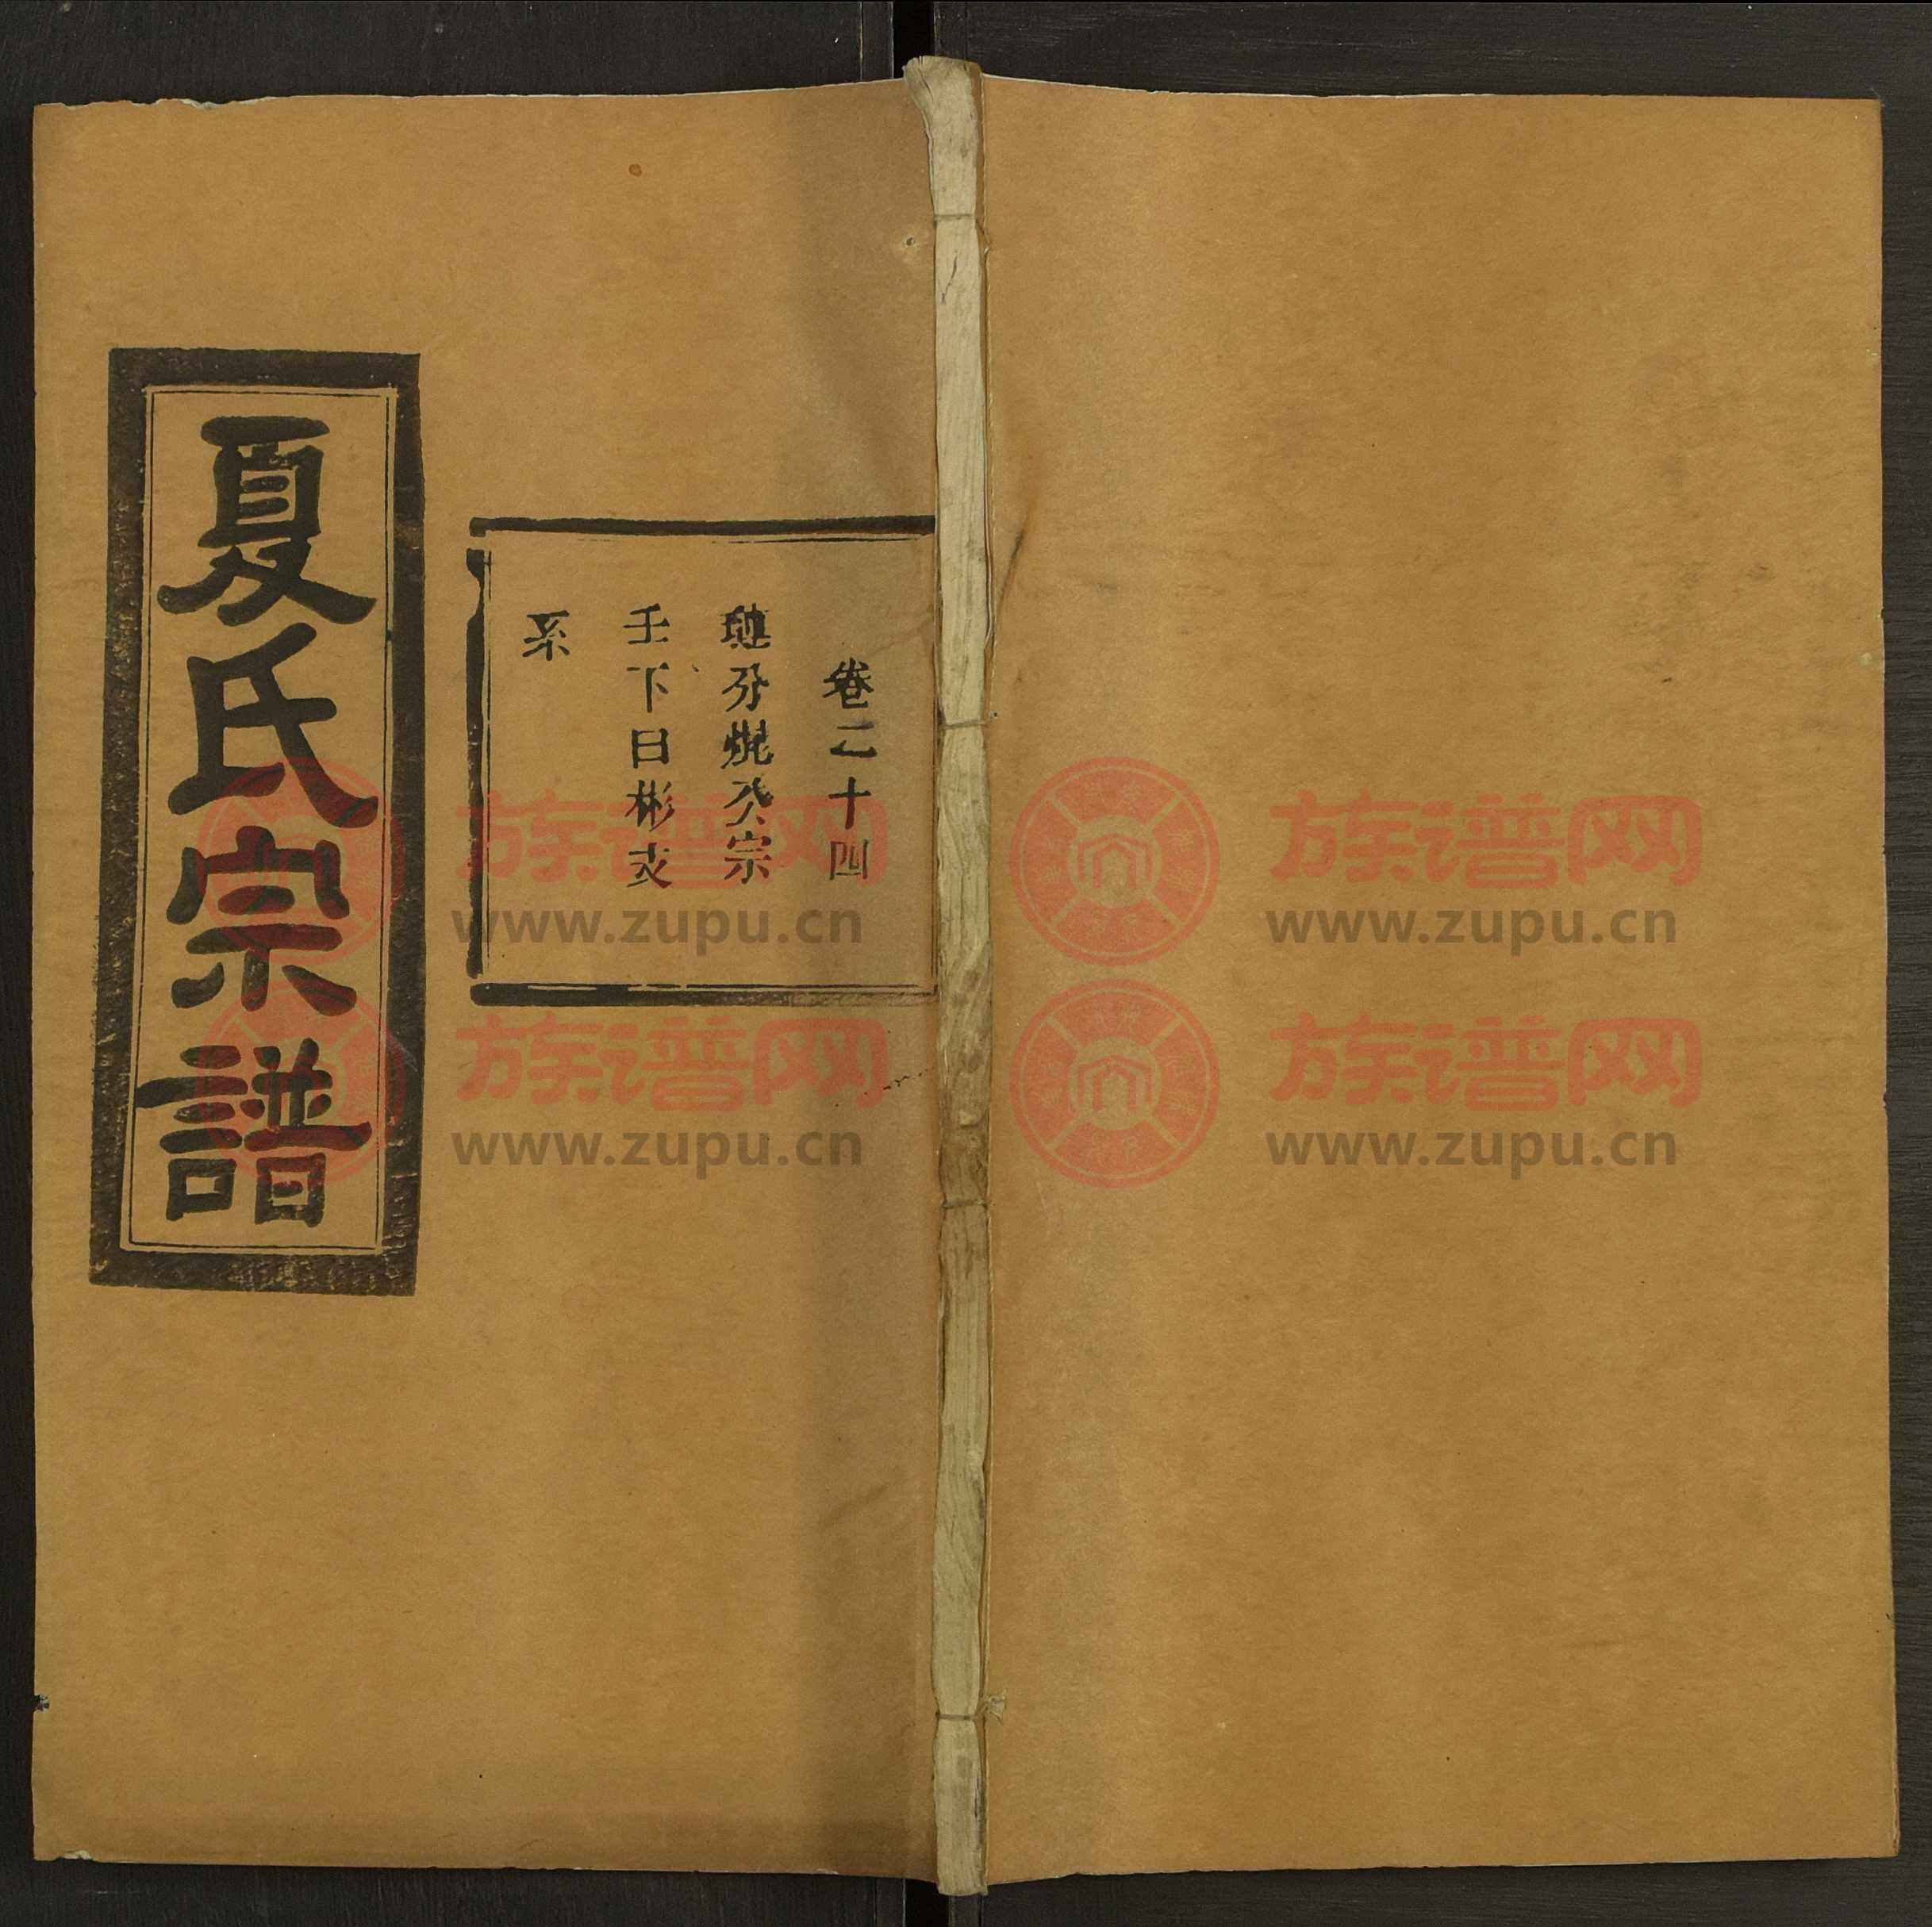 夏氏宗譜
卷之十四
分 公宗
壬下日彬支
系
族谱网
www.zupu.cn
族谱网
www.zupu.cn
族谱网
www.zupu.cn
族谱网
www.zupu.cn